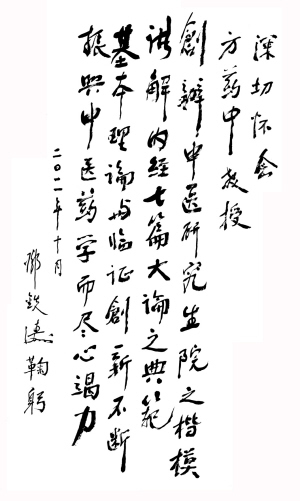 深切怀念
方药中教授
創辦中医研究生院之楷模
讲解内经七篇大论之典範
基本理論与临证創新不断
振興中医药学而尽心竭力
二〇一一年十月
邓铁涛鞠躬